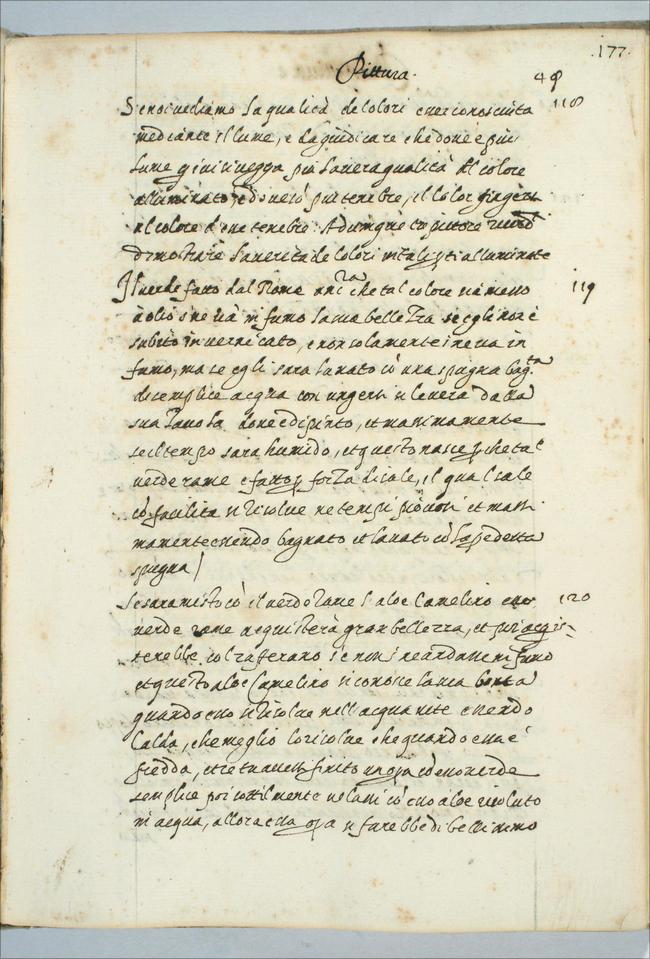 .177.
Pittura. 48
Se noi vediamo la qualità de colori esser conosciuta 118
mediante il lume, è da giudicare che dove è piu
lume quivi si vegga più la vera qualità del colore
alluminato, e dove è piu tenebre, il color tingersi
nel colore d'esse tenebre. Adunque tu pittore
dimostrare la verità de colori in tali parti alluminate
Il verde fatto dal Rame ancora che tal colore sia messo 119
à olio se ne và in fumo la sua bellezza se egli non è
subito invernicato, e non solamente se ne va in
fumo, ma se egli sara lavato cō una spugna bag.ta
di semplice acqua con ungersi si leverà dalla
sua Tavola dove è dipinto, et massimamente
se il tempo sara humido, et questo nasce perche tal
verde rame è fatto per forza di sale, il qual sale
cō facilita si risolve ne tempi piovosi et massi
mamente essendo bagnato et lavato cō la pedetta
spugna /
Se sara misto cō il verdo Rame l'aloe Camelino esso 120
verde rame acquisterà gran bellezza, et piu acqui=
sterebbe col zafferano se non se ne andasse in fumo
et questo aloe Camelino si conosce la sua bontà
quando esso si risolve nell'acqua vite essendo
Calda, che meglio lo risolve che quando essa è
fredda, et se tu avessi finito un opa cō esso verde
semplice poi sottilmente velassi cō esso aloe risoluto
in acqua, allora essa opa si farebbe di bellissimo